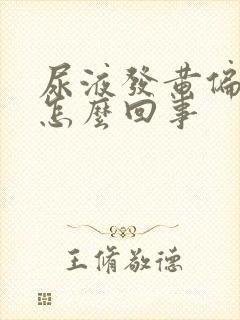 尿液發黃偏
怎麼回事
王脩敬德